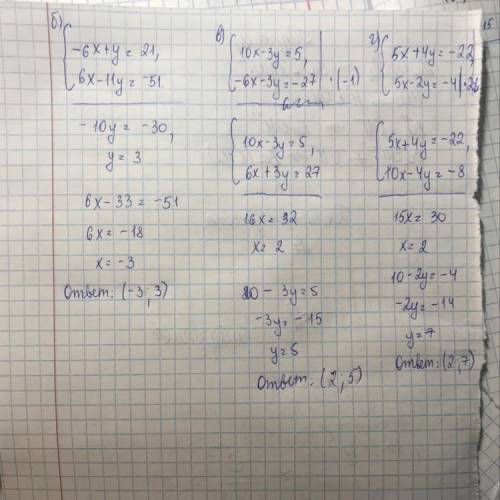 б) -6x+y=21,
6x-11y=-51
-10y=-30,
y=3
6x-33=-51
6x=-18
x=-3
Ответ: (-3; 3)
в) 10x-3y=5,
-6x-3y=-27 | ·(-1)
10x-3y=5,
6x+3y=27
16x=32
x=2
20-3y=5
-3y=-15
y=5
Ответ: (2; 5)
г) 5x+4y=-22,
5x-2y=-4 | ·2
5x+4y=-22,
10x-4y=-8
15x=30
x=2
10-2y=-4
-2y=-14
y=7
Ответ: (2; 7)
15